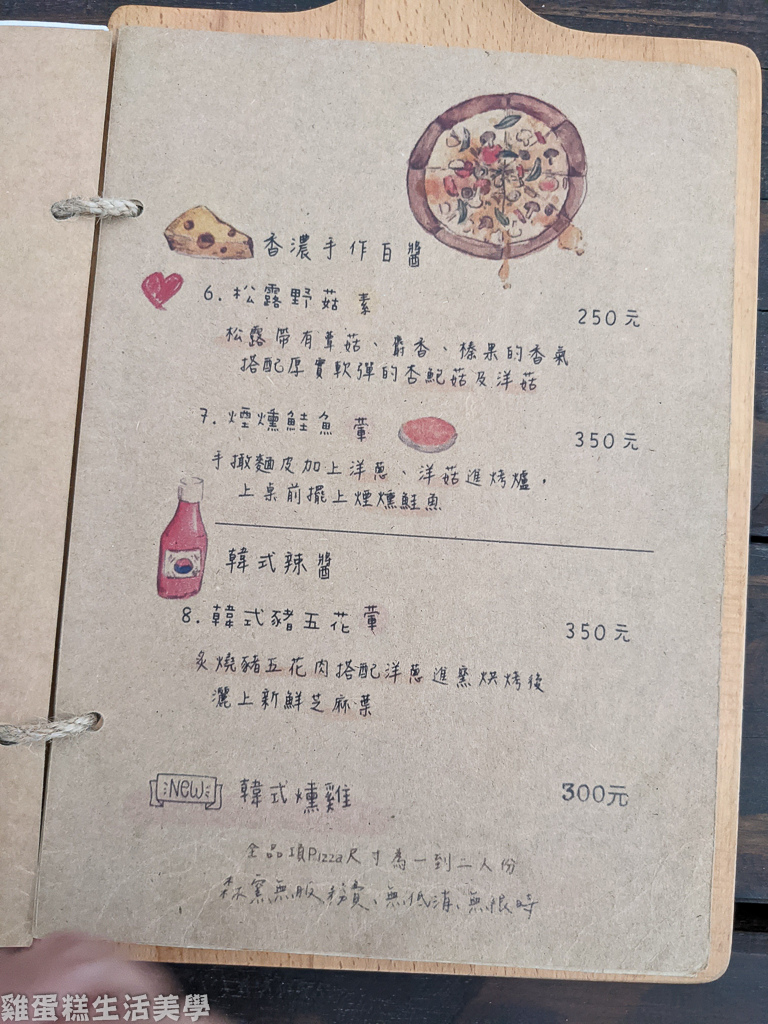 香濃手作白醬
6. 松露野菇 素 250元
松露帶有蕈菇、麝香、榛果的香氣
搭配厚實軟彈的杏鮑菇及洋菇
7. 煙燻鮭魚 葷 350元
手撖麵皮加上洋蔥、洋菇進烤爐，
上桌前擺上煙燻鮭魚
韓式辣醬
8. 韓式豬五花 葷 350元
炙燒豬五花肉搭配洋蔥進窯烘烤後
灑上新鮮芝麻葉
NEW 韓式燻雞 300元
全品項Pizza尺寸為一到二人份
森窯無服務費、無低消、無限時
雞蛋糕生活美學